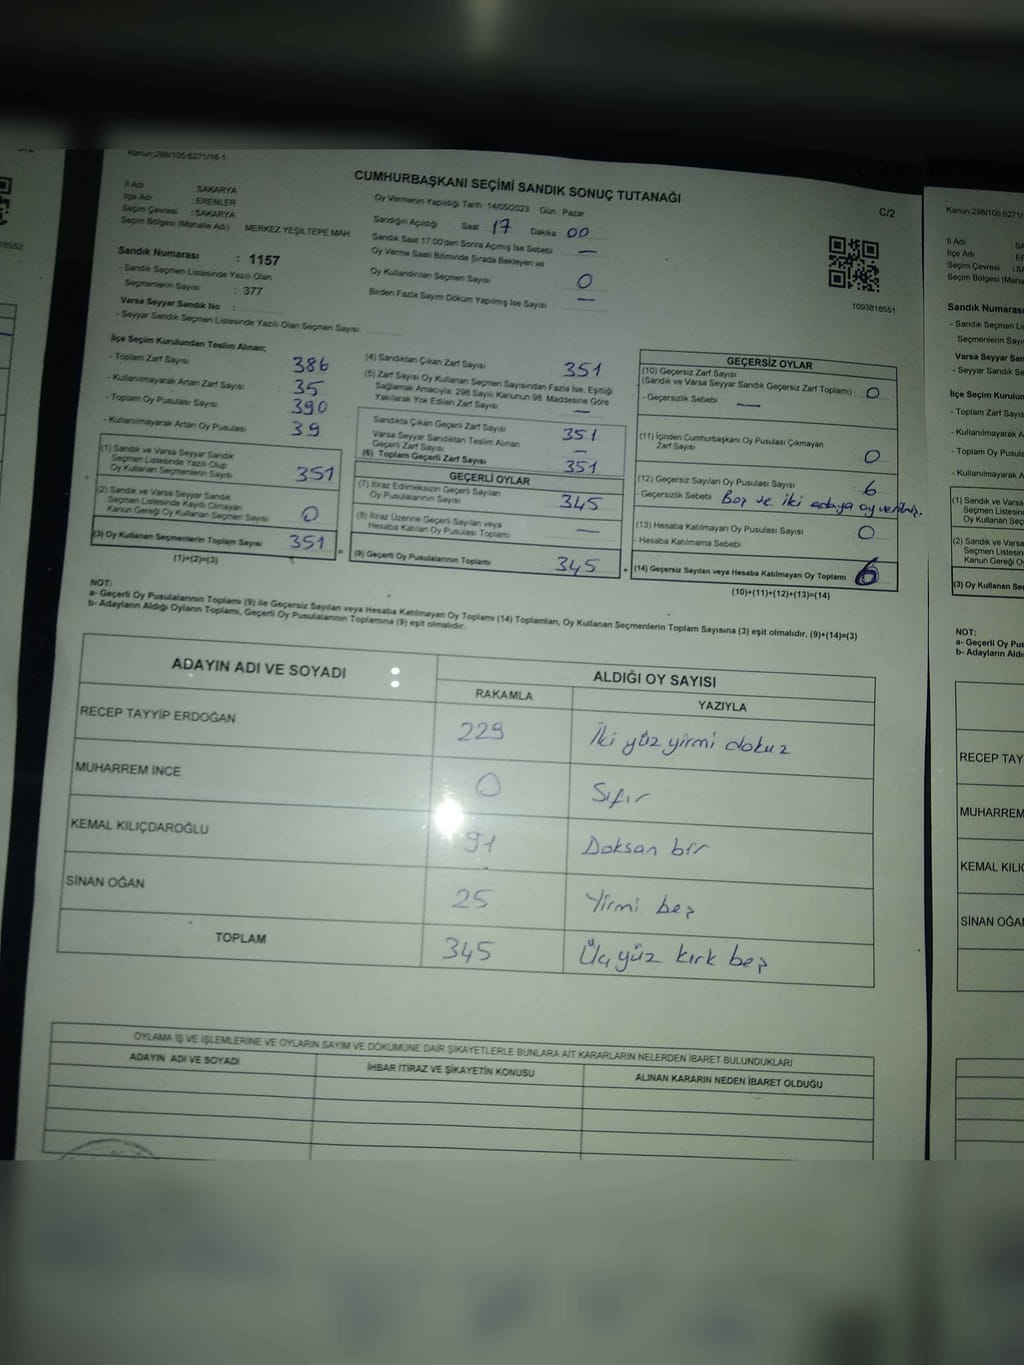 Kanun;298/105;6271/16-1
CUMHURBAŞKANI SEÇİMİ SANDIK SONUÇ TUTANAĞI
C/2
İl Adı SAKARYA
İlçe Adı ERENLER
Seçim Çevresi : SAKARYA
Seçim Bölgesi (Mahalle Adı) MERKEZ YEŞİLTEPE MAH
Oy Vermenin Yapıldığı Tarih 14/05/2023 Gün : Pazar
Sandığın Açıldığı Saat 17 Dakika 00
Sandık Saat 17:00'den Sonra Açılmış İse Sebebi —
Oy Verme Saati Bitiminde Sırada Bekleyen ve
Oy Kullandırılan Seçmen Sayısı 0
Birden Fazla Sayım Döküm Yapılmış İse Sayısı —
1093818551
Sandık Numarası : 1157
- Sandık Seçmen Listesinde Yazılı Olan
Seçmenlerin Sayısı : 377
Varsa Seyyar Sandık No :
- Seyyar Sandık Seçmen Listesinde Yazılı Olan Seçmen Sayısı:
İlçe Seçim Kurulundan Teslim Alınan;
- Toplam Zarf Sayısı 386
- Kullanılmayarak Artan Zarf Sayısı 35
- Toplam Oy Pusulası Sayısı 390
- Kullanılmayarak Artan Oy Pusulası 39
(1) Sandık ve Varsa Seyyar Sandık
Seçmen Listesinde Yazılı Olup
Oy Kullanan Seçmenlerin Sayısı 351
(2) Sandık ve Varsa Seyyar Sandık
Seçmen Listesinde Kayıtlı Olmayan
Kanun Gereği Oy Kullanan Seçmen Sayısı 0
(3) Oy Kullanan Seçmenlerin Toplam Sayısı 351
(1)+(2)=(3)
(4) Sandıktan Çıkan Zarf Sayısı 351
(5) Zarf Sayısı Oy Kullanan Seçmen Sayısından Fazla İse, Eşitliği
Sağlamak Amacıyla, 298 Sayılı Kanunun 98. Maddesine Göre
Yakılarak Yok Edilen Zarf Sayısı —
Sandıkta Çıkan Geçerli Zarf Sayısı 351
Varsa Seyyar Sandıktan Teslim Alınan
Geçerli Zarf Sayısı —
(6) Toplam Geçerli Zarf Sayısı 351
GEÇERLİ OYLAR
(7) İtiraz Edilmeksizin Geçerli Sayılan
Oy Pusulalarının Sayısı 345
(8) İtiraz Üzerine Geçerli Sayılan veya
Hesaba Katılan Oy Pusulası Toplamı —
= (9) Geçerli Oy Pusulalarının Toplamı 345 +
GEÇERSİZ OYLAR
(10) Geçersiz Zarf Sayısı
(Sandık ve Varsa Seyyar Sandık Geçersiz Zarf Toplamı) 0
- Geçersizlik Sebebi —
(11) İçinden Cumhurbaşkanı Oy Pusulası Çıkmayan
Zarf Sayısı 0
(12) Geçersiz Sayılan Oy Pusulası Sayısı 6
- Geçersizlik Sebebi Boş ve iki adaya oy verilmiş.
(13) Hesaba Katılmayan Oy Pusulası Sayısı 0
- Hesaba Katılmama Sebebi
(14) Geçersiz Sayılan veya Hesaba Katılmayan Oy Toplamı 6
(10)+(11)+(12)+(13)=(14)
NOT:
a- Geçerli Oy Pusulalarının Toplamı (9) ile Geçersiz Sayılan veya Hesaba Katılmayan Oy Toplamı (14) Toplamları, Oy Kullanan Seçmenlerin Toplam Sayısına (3) eşit olmalıdır. (9)+(14)=(3)
b- Adayların Aldığı Oyların Toplamı, Geçerli Oy Pusulalarının Toplamına (9) eşit olmalıdır.
ADAYIN ADI VE SOYADI ALDIĞI OY SAYISI
RAKAMLA YAZIYLA
RECEP TAYYİP ERDOĞAN 229 İki yüz yirmi dokuz
MUHARREM İNCE 0 Sıfır
KEMAL KILIÇDAROĞLU 91 Doksan bir
SİNAN OĞAN 25 Yirmi beş
TOPLAM 345 Üç yüz kırk beş
OYLAMA İŞ VE İŞLEMLERİNE VE OYLARIN SAYIM VE DÖKÜMÜNE DAİR ŞİKAYETLERLE BUNLARA AİT KARARLARIN NELERDEN İBARET BULUNDUKLARI
ADAYIN ADI VE SOYADI İHBAR İTİRAZ VE ŞİKAYETİN KONUSU ALINAN KARARIN NEDEN İBARET OLDUĞU
Kanun;298/105;6271/
İl Adı
İlçe Adı
Seçim Çevresi
Seçim Bölgesi (Mahalle
Sandık Numarası
- Sandık Seçmen
Seçmenlerin Sayısı
Varsa Seyyar Sa
- Seyyar Sandık Se
İlçe Seçim Kurulu
- Toplam Zarf
- Kullanılmayarak
- Toplam Oy Pusul
- Kullanılmayarak A
(1) Sandık ve Varsa
Seçmen Listesin
Oy Kullanan Seç
(2) Sandık ve Varsa
Seçmen Listesin
Kanun Gereği O
(3) Oy Kullanan Se
NOT:
a- Geçerli Oy Pus
b- Adayların Aldı
RECEP TAY
MUHARREM
KEMAL KILI
SİNAN OĞA